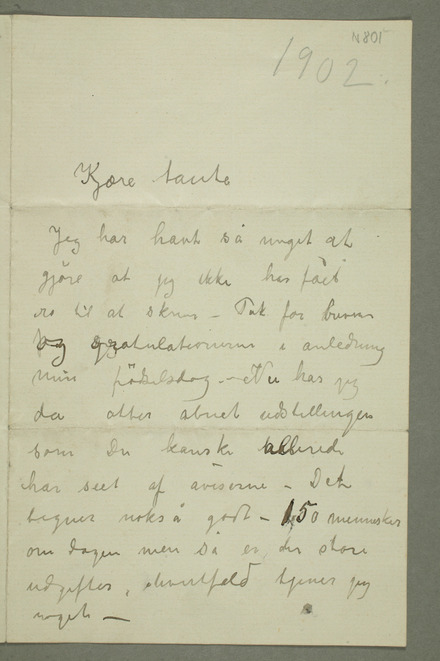 N 801
1902.
Kjære tante
Jeg har havt så meget at
gjöre at jeg ikke har fået
ro til at skrive – Tak for brevet
og gratulationerne i anledning
min födselsdag – Nu har jeg
da atter åbnet udstillingen
som Du kanske allerede
har seet af aviserne – Det
tegner nokså godt – 150 mennesker
om dagen men så er der store
udgifter, tjener jeg
noget –